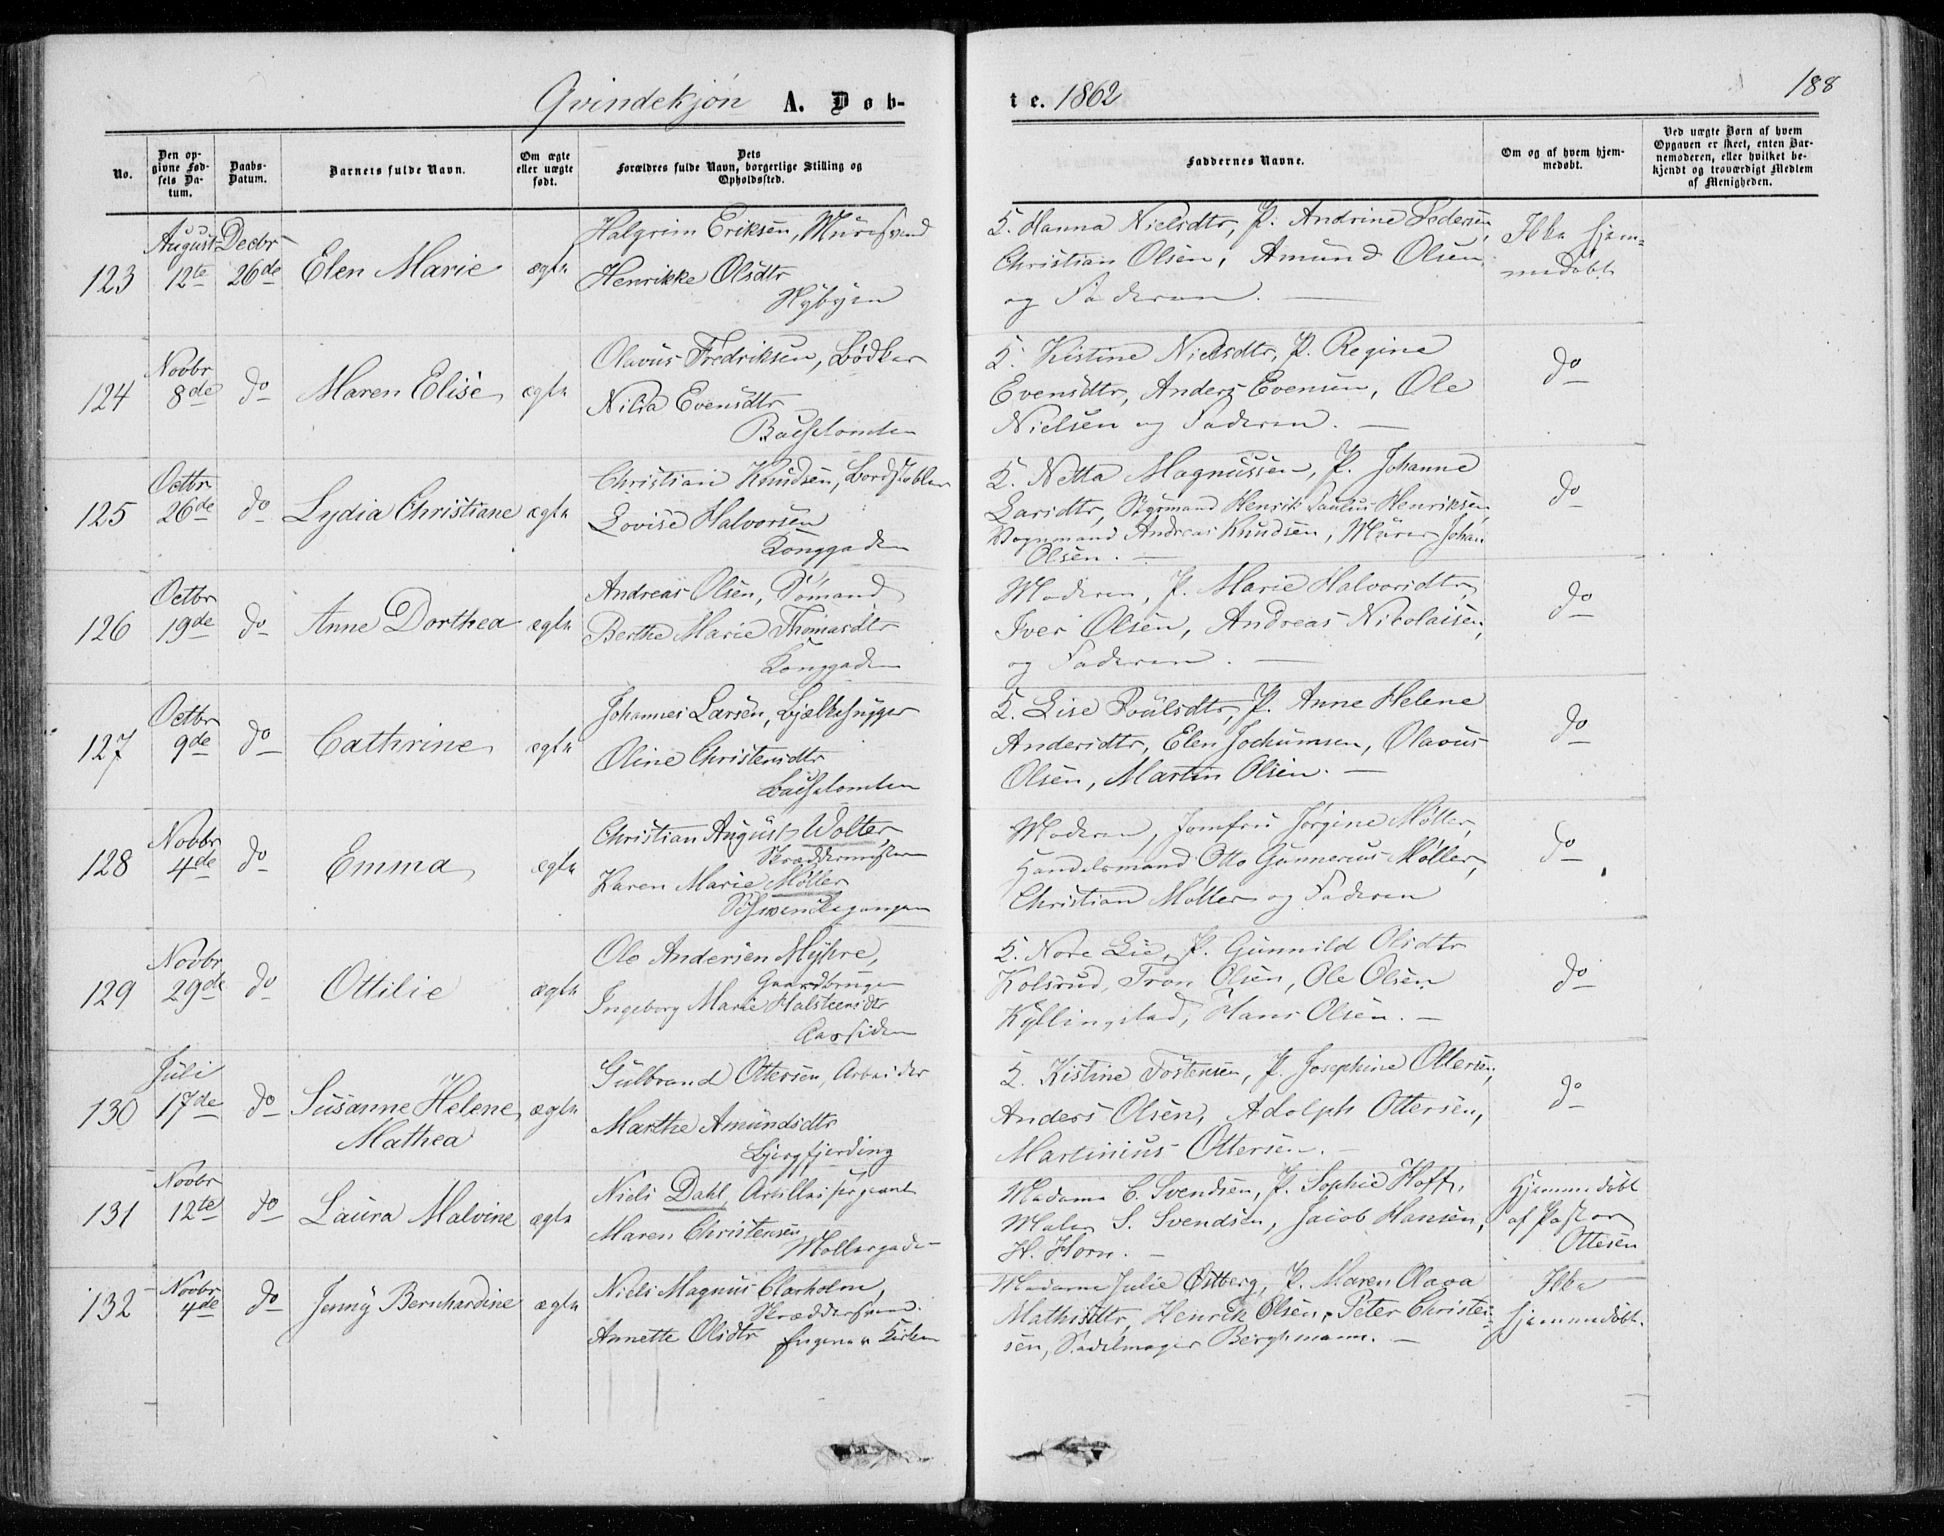 Qvindekjøn A. Døb-
te. 1862
188
No.
Den op-
givne Fød-
sels Da-
tum.
Daabs-
Datum.
Barnets fulde Navn.
Om ægte
eller uægte
født.
Dets
Forældres fulde Navn, borgerlige Stilling og
Opholdssted.
Faddernes Navne.
Om og af hvem hjem-
medøbt.
Ved uægte Børn af hvem
Opgaven er skeet, enten Bar-
nemoderen, eller hvilket be-
kjendt og troværdigt Medlem
af Menigheden.
123
August
12te
Decbr
26de
Elen Marie
ægte
Halgrim Eriksen, Muresvend
Henrikke Olsdtr
Nybyen
K. Hanna Nielsdtr, P. Andrine Pedersen,
Christian Olsen, Amund Olsen
og Faderen. —
Ikke hjem-
medøbt
124
Novbr
8de
do
Maren Elise
ægte
Olavus Fredriksen, Bødker
Nilia Evensdtr
K. Kistine Nielsdtr, P. Regine
Evensdtr, Anders Evensen, Ole
Nielsen og Faderen. —
do
125
Octbr
26de
do
Lydia Christiane
ægte
Christian Knudsen, Bordstabler
Lovise Halvorsen
Konggaden
K. Netta Magnussen, P. Johanne
Larsdtr, Styrmand Henrik Paulus Henriksen,
Vognmand Andreas Knudsen, Murer Johan
Olsen. —
do
126
Octbr
19de
do
Anne Dorthea
ægte
Andreas Olsen, Sømand
Berthe Marie Thomasdtr
Konggaden
Moderen, P. Marie Halvorsdtr,
Iver Olsen, Andreas Nikolaisen,
og Faderen. —
do
127
Octbr
9de
do
Cathrine
ægte
Johannes Larsen, Bjelkehugger
Oline Christensdtr
K. Lise Poulsdtr, P. Anne Helene
Andersdtr, Elen Jochumsen, Olavus
Olsen, Martin Olsen. —
do
128
Novbr
4de
do
Emma
ægte
Christian August Wolter
Skræddermester
Karen Marie Møller
Schwenckegangen
Moderen, Jomfru Jørgine Møller,
Handelsmand Otto Gunnerus Møller,
Christian Møller og Faderen
do
129
Novbr
29de
do
Ottilie
ægte
Ole Andersen Myhre,
Gaardbruger
Ingeborg Marie Halsteensdtr
Aassiden
K. Nore Lie, P. Gunnild Olsdtr
Kolsrud, Tron Olsen, Ole Olsen
Kyllingstad, Hans Olsen. —
do
130
Juli
17de
do
Susanne Helene
Mathea
ægte
Gulbrand Ottersen, Arbeider
Marthe Amundsdtr
Bjergfjerding
K. Kistine Tostensen, P. Josephine Ottersen,
Anders Olsen, Adolph Ottersen,
Martinius Ottersen. —
do
131
Novbr
12te
do
Laura Malvine
ægte
Niels Dahl, Artillerisergeant
Maren Christensen
Møllergaden
Madame C. Svendsen, P. Sophie Hoff,
Maler S. Svendsen, Jacob Hansen,
H. Horn. —
Hjemmedøbt
af Pastor
Ottesen
132
Novbr
4de
do
Jenny Bernhardine
ægte
Niels Magnus Clarholm,
Skræddersvend.
Annette Olsdtr
Madame Julie Østberg, P. Maren Olava
Mathisdtr, Henrik Olsen, Peter Christen-
sen, Sadelmager Berghmann. —
Ikke
hjemmedøbt.